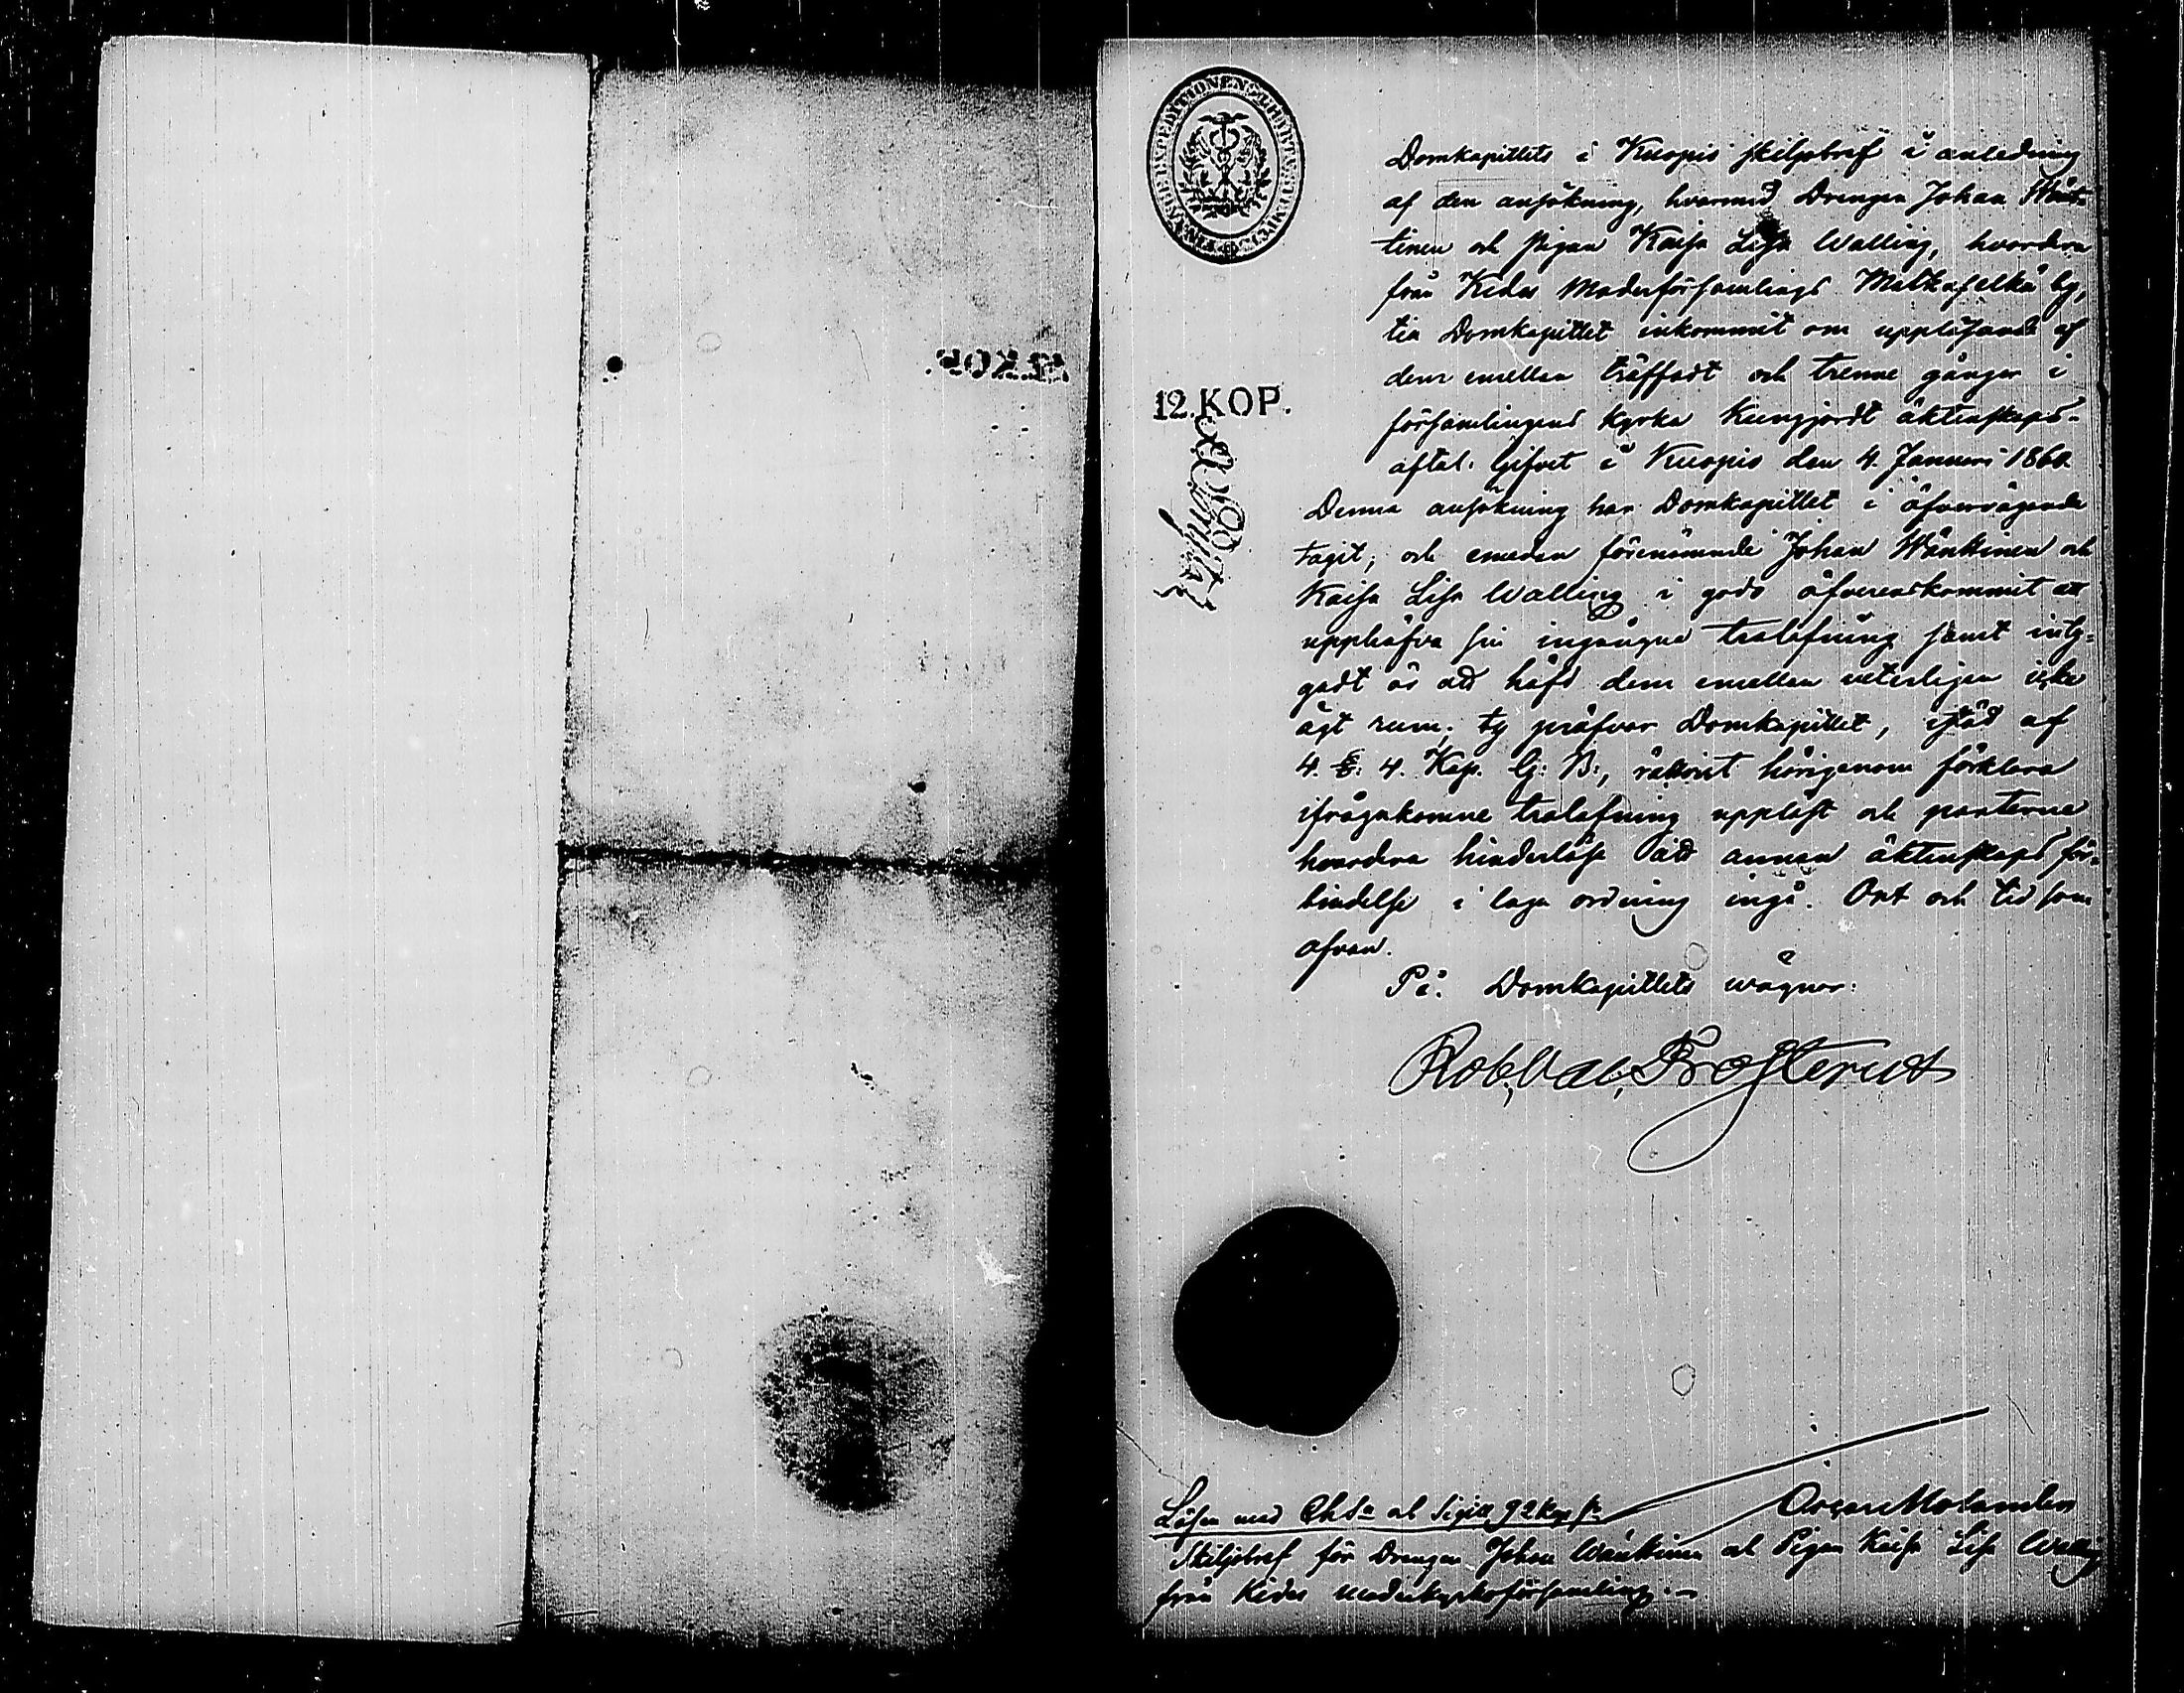 12. KOP.
Domkapitlets i Kuopio skiljobref i anledning
af den ansökning, hvarmed Drengen Johan Wänt-
tinen och Pigan Kaisa Lisa Walling, hvardera
från Kides Moderförsamlings Matkaselkä by,
till Domkapitlet inkommit om upplösande af
dem emellan träffadt och trenne gånger i
församlingens kyrka kungjordt äktenskaps-
aftal. Gifvet i Kuopio den 4. Januari 1860.
Denna ansökning har Domkapitlet i öfvervägande
tagit; och emedan förenämnde Johan Wänttinen och
Kaisa Lisa Walling i godo öfverenskommit att
upphäfva sin ingångna trolofning samt inty-
gadt är att häfd dem emellan veterligen icke
ägt rum; ty pröfvar Domkapitlet, i stöd af
4. §. 4. Kap. G: B:, rättvist härigenom förklara
ifrågakomne trolofning upplöst och parterne
hvardera hinderlösa att annan äktenskaps för-
bindelse i laga ordning ingå. Ort och tid som
ofvan.
På Domkapitlets vägnar:
Rob. Val. Frosterus
Lösen med Ch. S. och Sigill 92 kop. S.
Oscar Molander
Skiljobref för Drengen Johan Wänttinen och Pigan Kaisa Lisa Walling
från Kides moderkyrkoförsamling.